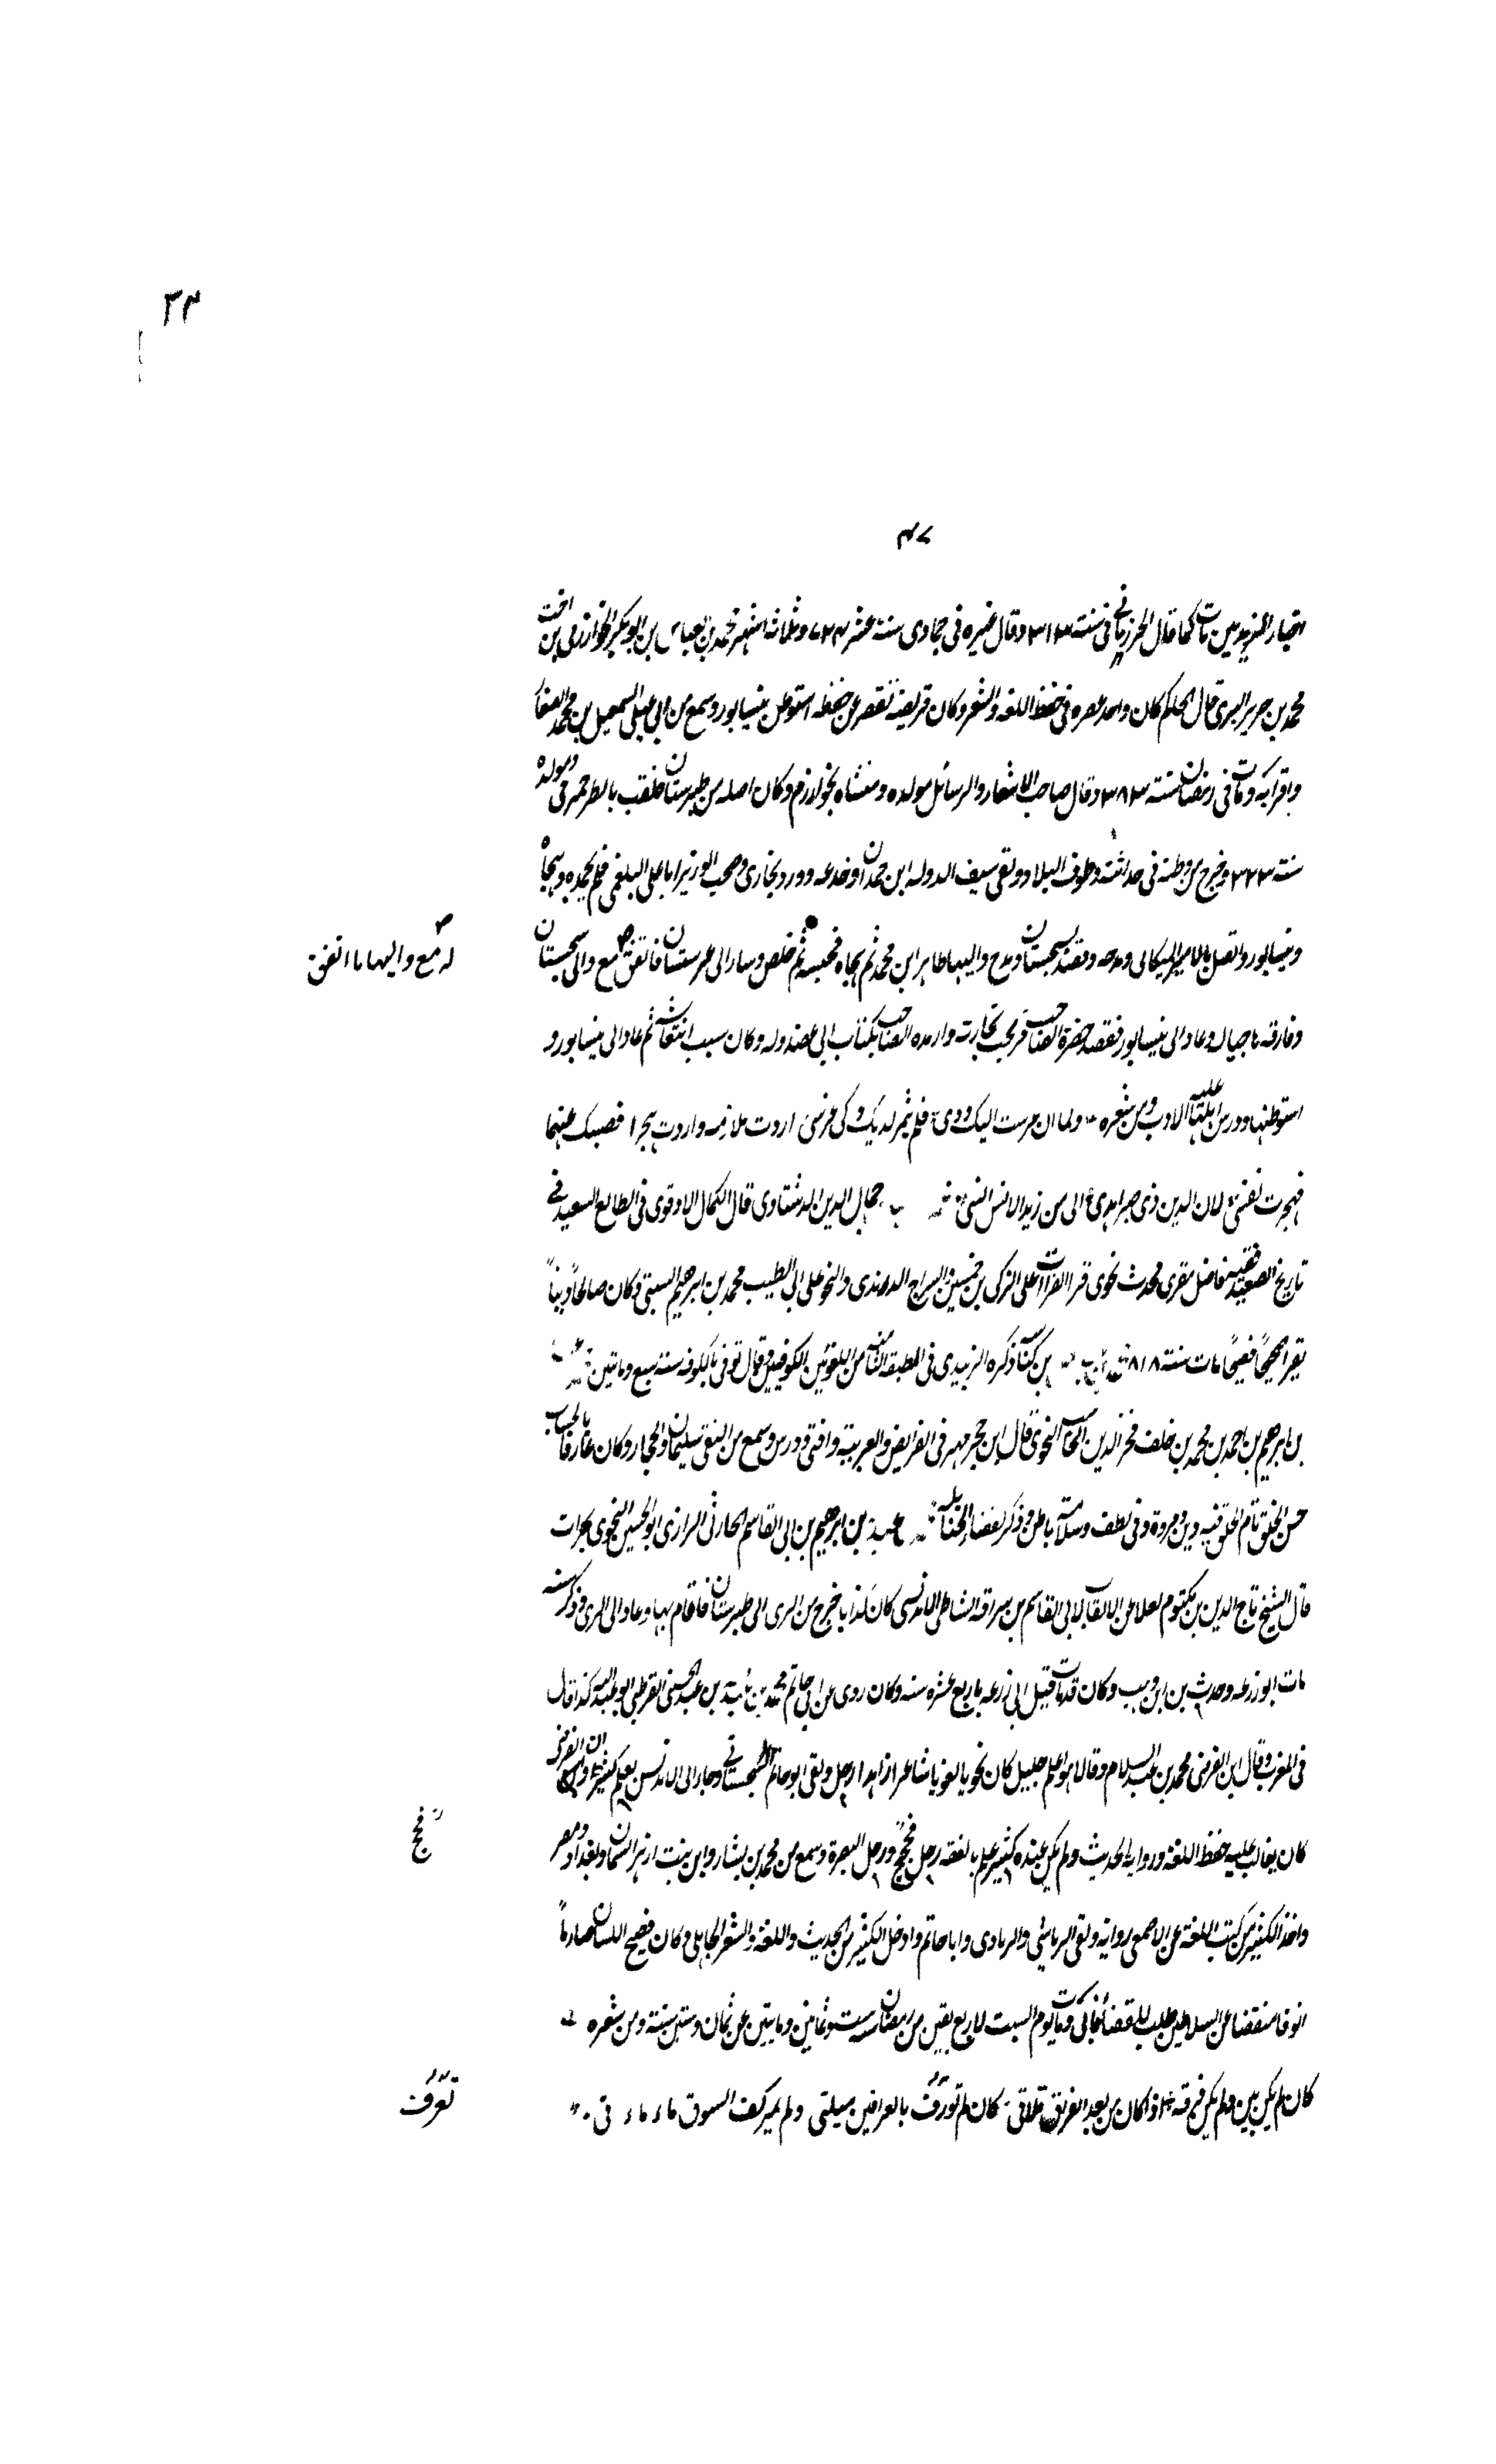 ٣٣
٤٧
اخبار اليزيديين مات كما قال المرزباني في سنة ٣١٣ وقال غيره في جمادى سنة عشر وثلاثمائة محمد بن العباس بن ابو بكر الخوارزمي بن اخت
محمد بن جرير الطبري قال الحاكم كان واحد عصره في حفظ اللغة والشعر وكان استوطن نيسابور وسمع من ابي علي اسمعيل بن محمد الصفار
واقرانه ومات في رمضان سنة ٣٨٣ وقال صاحب الاشعار والرسائل مولده ومنشاه بخوارزم وكان اصله من طبرستان فلقب بالطبرخزمي ومولده
سنة ٣٢٣ وخرج من وطنه في حداثته وطوف البلاد ولقي سيف الدولة ابن حمدان وخدمه وورد بخارى وصحب الوزير ابا علي البلعمي فلم يحمده وهجاه
ونيسابور واتصل بالامير الميكالي ومدحه وقصد سجستان ومدح واليها طاهر ابن محمد ثم هجاه فحبسه ثم خلص وسار الى غرستان فاتفق مع والى سجستان
له مع واليها ما اتفق
وفارقه وعاد الى نيسابور فقصد حضرة الصاحب بن عباد وارفده الصاحب بكتاب الى عضد دولة وكان سبب انتعاشه ثم عاد الى نيسابور و
استوطنها ودرس اهلها عليه الادب ومن شعره ولما ان غرست اليك ودي فلم يثمر لديك زكي غرسي اردت ملامة واردت هجرا
فهجرت نفسي لان الذئب الى من زيد الانس النسي جمال الدين الدشناوي قال الكمال الادفوي في الطالع السعيد في
تاريخ الصعيد فقيه فاضل مقرى محدث نحوي قرا القراات على الزكي بن خميس السراج الدرندي والنحو على ابي الطيب محمد بن ابرهيم السبتي وكان صالحا دينا
يقرا صحيحا فصيحا مات سنة ٨١٨ بن كناسة ذكره الزبيدي في الطبقة الثانية من اللغويين الكوفيين وقال توفي بالكوفة سنة سبع ومائتين
بن ابرهيم بن احمد بن محمد بن خلف فخر الدين النحوي قال ابن حجر مهر في الفرايض والعربية وافتى ودرس وسمع من التقي سليمان والحجار وكان عارفا بالحساب
حسن الخلق تام الخلق فيه دين ومروة وفي لطف وسلامة باطن وذكر لقضاء الحنابلة عبيد بن ابرهيم بن ابي القاسم الحارثي الرازي ابو الحسين النحوي
قال الشيخ تاج الدين بن مكتوم نقلا عن الالقاب لابي القاسم بن سراقة الشاطبي الاندلسي كان كذابا خرج من الري الى طبرستان فاقام بها وعاد الى الري وذكر سنة
مات ابو زرعة وحدث بن ابن وهب وكان قد مات قبل ابي زرعة باربع عشرة سنة وكان روى عن ابي حاتم محمد بن عبد الخشني القرطبي ابو عبد الله كذا قال
في المغرب وقال ابن الفرضي محمد بن عبد السلام وقالا هو عالم جليل كان نحويا لغويا شاعرا زاهدا رحل ولقي ابو حاتم السجستاني وجاز الى الاندلس بعلم كثير
كان يغالب عليه حفظ اللغة ورواية الحديث ولم يكن عنده كثير علم بالفقه رحل فحج ورحل البصرة وسمع من محمد بن بشار وابن بنت ازهر السمان وبغداد ومصر
فحج
واخذ الكثير من كتب اللغة عن الاصمعي رواية ولقي الرياشي والزيادي وابا حاتم وادخل الكثير من الحديث واللغة والشعر الجاهلي وكان فصيح اللسان صارما
انوفا منقبضا عن السلاطين طلب للقضاء فابى ومات يوم السبت لاربع بقين من رمضان سنة ست وثمانين ومايتين عن ثمان وستين سنة ومن شعره
كان لم يكن بين ولم يكن فرقة اذا كان من بعد الفريق تلاقي كان لم تورق بالعراقين مقلتي ولم تمر كف الشوق ماء ماءقي
تعرف